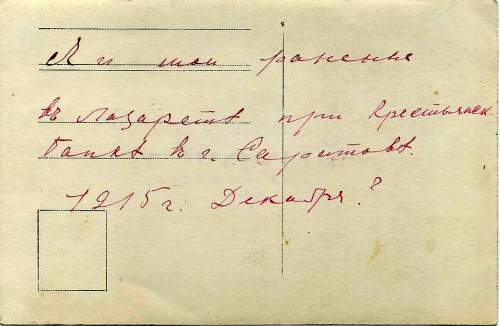 Я и мои раненые
въ Лазаретѣ при Крестьянск.
банкѣ въ г. Саратовѣ.
1915 г. Декабря?